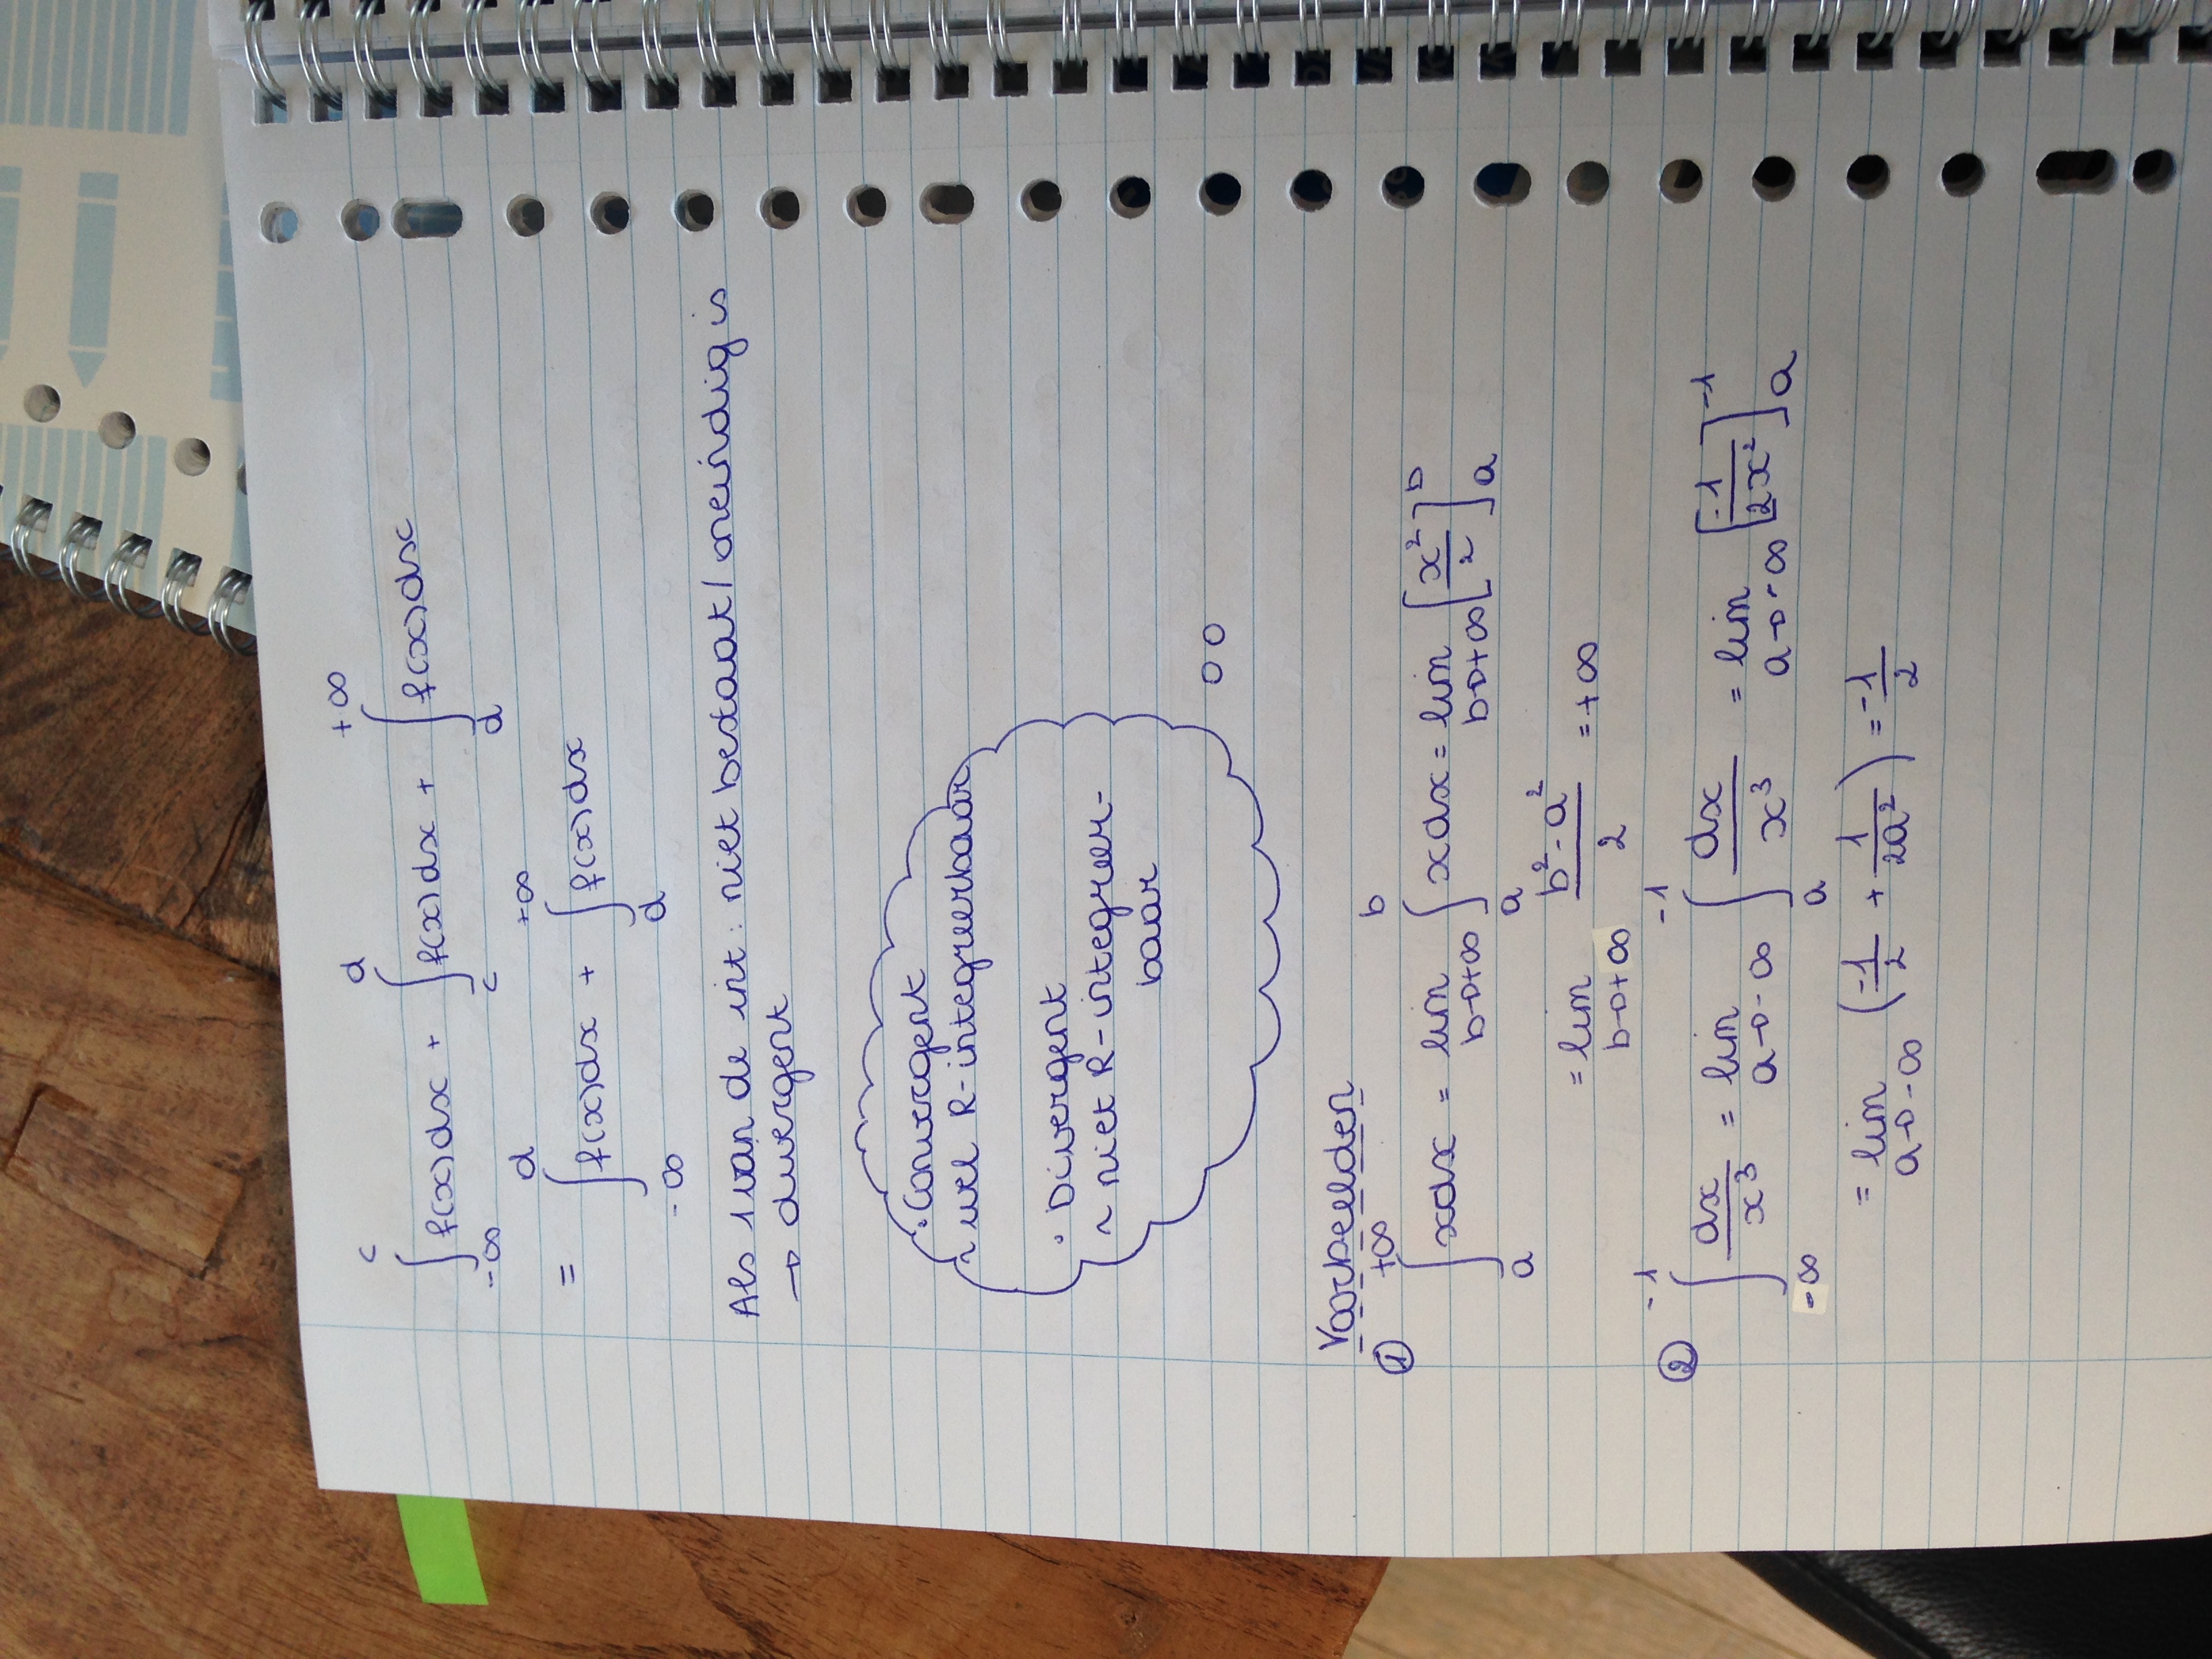 ∫_{-∞}^{c} f(x)dx + ∫_{c}^{d} f(x)dx + ∫_{d}^{+∞} f(x)dx
= ∫_{-∞}^{d} f(x)dx + ∫_{d}^{+∞} f(x)dx
Als 1 van de int. niet bestaat / oneindig is
→ divergent
• Convergent
~ wel R-integreerbaar
• Divergent
~ niet R-integreer-
baar
Voorbeelden
① ∫_{a}^{+∞} xdx = lim_{b→+∞} ∫_{a}^{b} xdx = lim_{b→+∞} [x²/2]_{a}^{b}
= lim_{b→+∞} (b²-a²)/2 = +∞
② ∫_{-∞}^{-1} dx/x³ = lim_{a→-∞} ∫_{a}^{-1} dx/x³ = lim_{a→-∞} [-1/2x²]_{a}^{-1}
= lim_{a→-∞} (-1/2 + 1/2a²) = -1/2